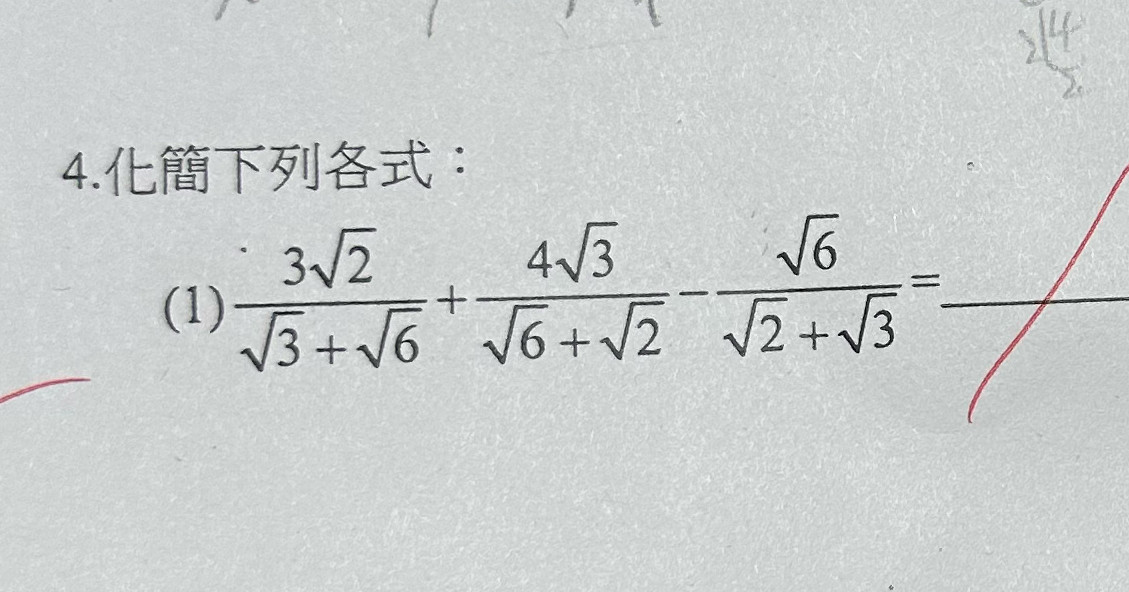 2 4
2
4.化簡下列各式：
(1) 3√2/(√3+√6) + 4√3/(√6+√2) − √6/(√2+√3) =